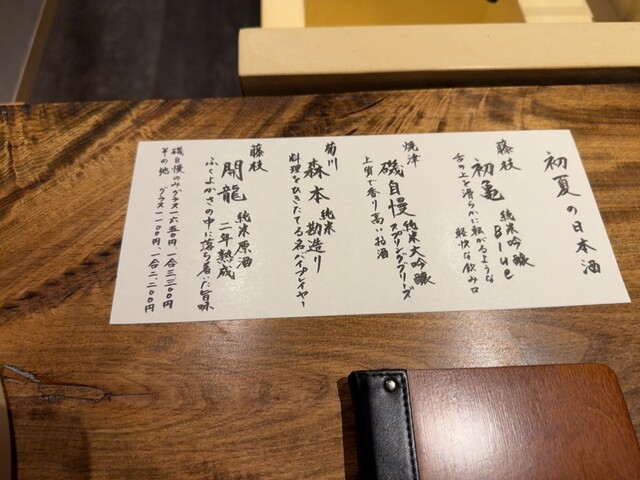 初夏の日本酒
藤枝
初亀 純米吟醸 Blue
舌の上を滑らかに転がるような 軽快な飲み口
焼津
磯自慢 純米大吟醸 スプリングブリーズ
上質で香り高い名酒
菊川
森本 純米 勘造り
料理をひきたてる名バイプレイヤー
藤枝
開龍 純米原酒 二年熟成
ふくよかさの中に落ち着いた旨味
磯自慢のみグラス一六五〇円 一合三三〇〇円
その他 グラス一一〇〇円 一合二、二〇〇円